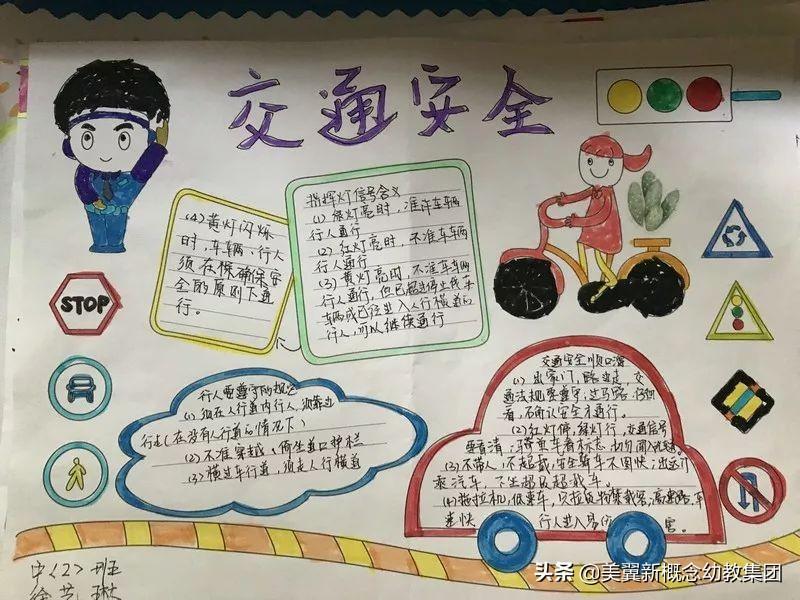 交通安全
指挥灯信号含义
(1) 绿灯亮时，准许车辆
行人通行
(2) 红灯亮时，不准车辆
行人通行
(3) 黄灯亮时，不准车辆
行人通行，但已超过停止线
车辆或已经进入人行横道的
行人，可以继续通行
(4) 黄灯闪烁
时，车辆、行人
须在保确保安
全的原则下通
行。
STOP
行人要遵守的规定
(1) 须在人行道内行人，须靠边
行走(在没有人行道的情况下)
(2) 不准穿越、倚坐道口护栏
(3) 横过车行道，须走人行横道
交通安全顺口溜
(1) 出家门，路边走，交
通法规要遵守，过马路，仔细
看，不确认安全不通行。
(2) 红灯停，绿灯行，交通信号
要看清，骑单车看标志
(3) 不带人，不超载，安全骑车不图快，出远门
乘汽车，不坐超员超载车。
(4) 拖拉机，低速车，只拉货物禁载客，高速路，车
速快 行人进入
中(2)班
头条 @美翼新概念幼教集团